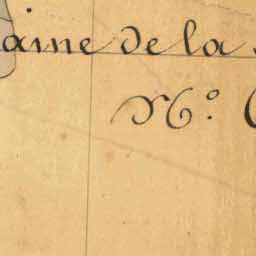 aine de la
N°.